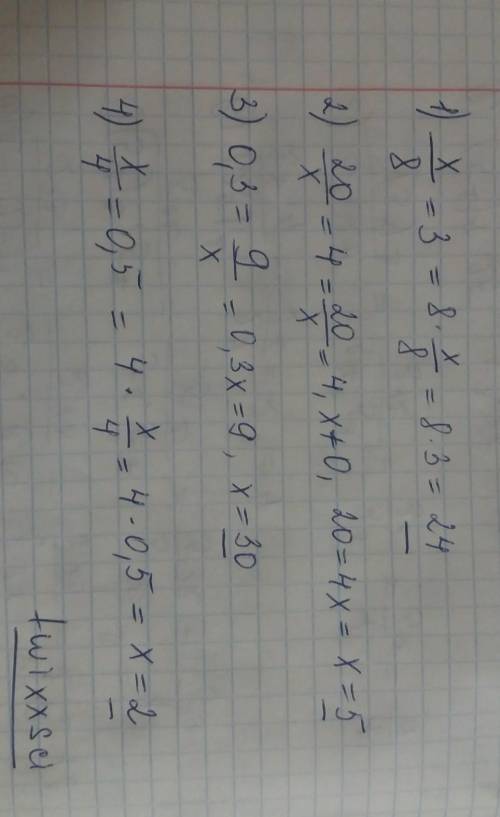 1) x/8 = 3 = 8 · x/8 = 8 · 3 = 24
2) 20/x = 4 = 20/x = 4, x≠0, 20 = 4x = x = 5
3) 0,3 = 9/x = 0,3x = 9, x = 30
4) x/4 = 0,5 = 4 · x/4 = 4 · 0,5 = x = 2
twixxsci